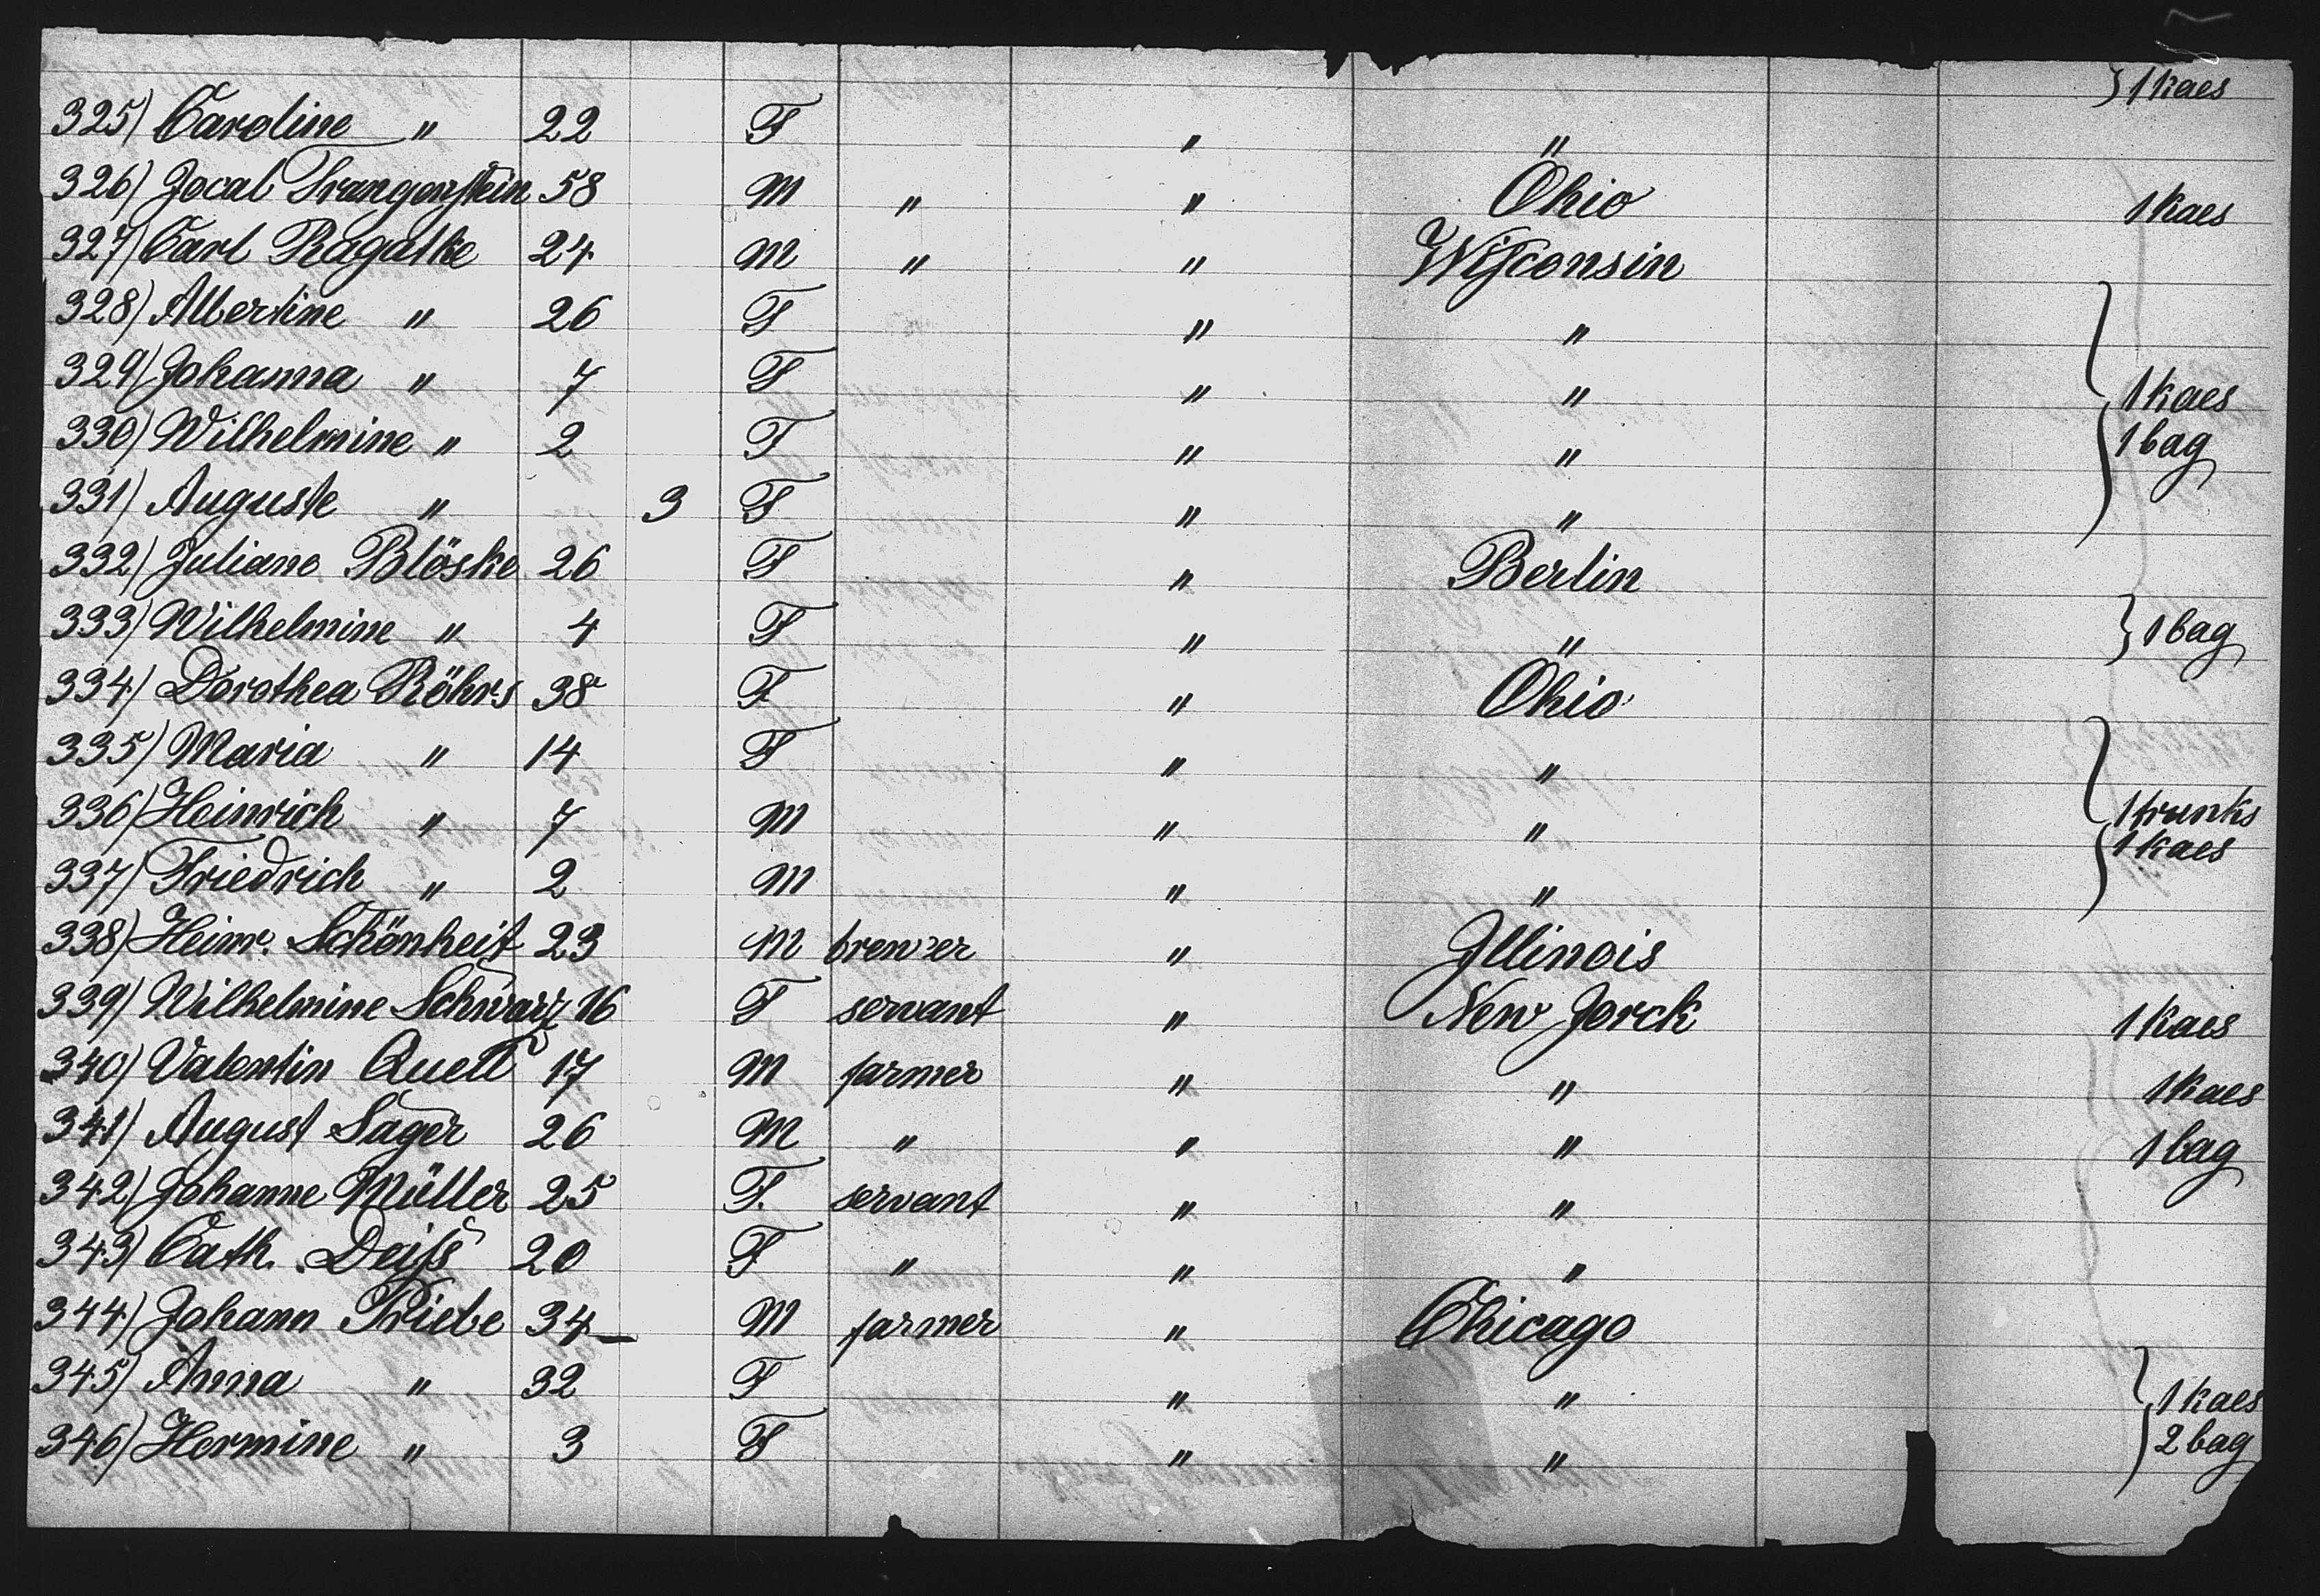 } 1 kaes
325) Caroline " 22 F " "
326) Jocab Trangenstein 58 M " " Ohio 1 kaes
327) Carl Ragatke 24 M " " Wisconsin
328) Albertine " 26 F " "
329) Johanna " 7 F " " } 1 kaes
330) Wilhelmine " 2 F " " 1 bag
331) Auguste " 3 F " "
332) Juliane Blöske 26 F " Berlin
333) Wilhelmine " 4 F " " } 1 bag
334) Dorothea Röhrs 38 F " Ohio
335) Maria " 14 F " "
336) Heinrich " 7 M " " } 1 trunks
337) Friedrich " 2 M " " 1 kaes
338) Heinr. Schönheit 23 M brewer " Illinois
339) Wilhelmine Schwarz 16 F servant " New Jorck 1 kaes
340) Valentin Quell 17 M farmer " " 1 kaes
341) August Sager 26 M " " " 1 bag
342) Johanne Müller 25 F. servant " "
343) Cath. Deiſs 20 F " " "
344) Johann Priebe 34 M farmer " Chicago
345) Anna " 32 F " " } 1 kaes
346) Hermine " 3 F " " 2 bag